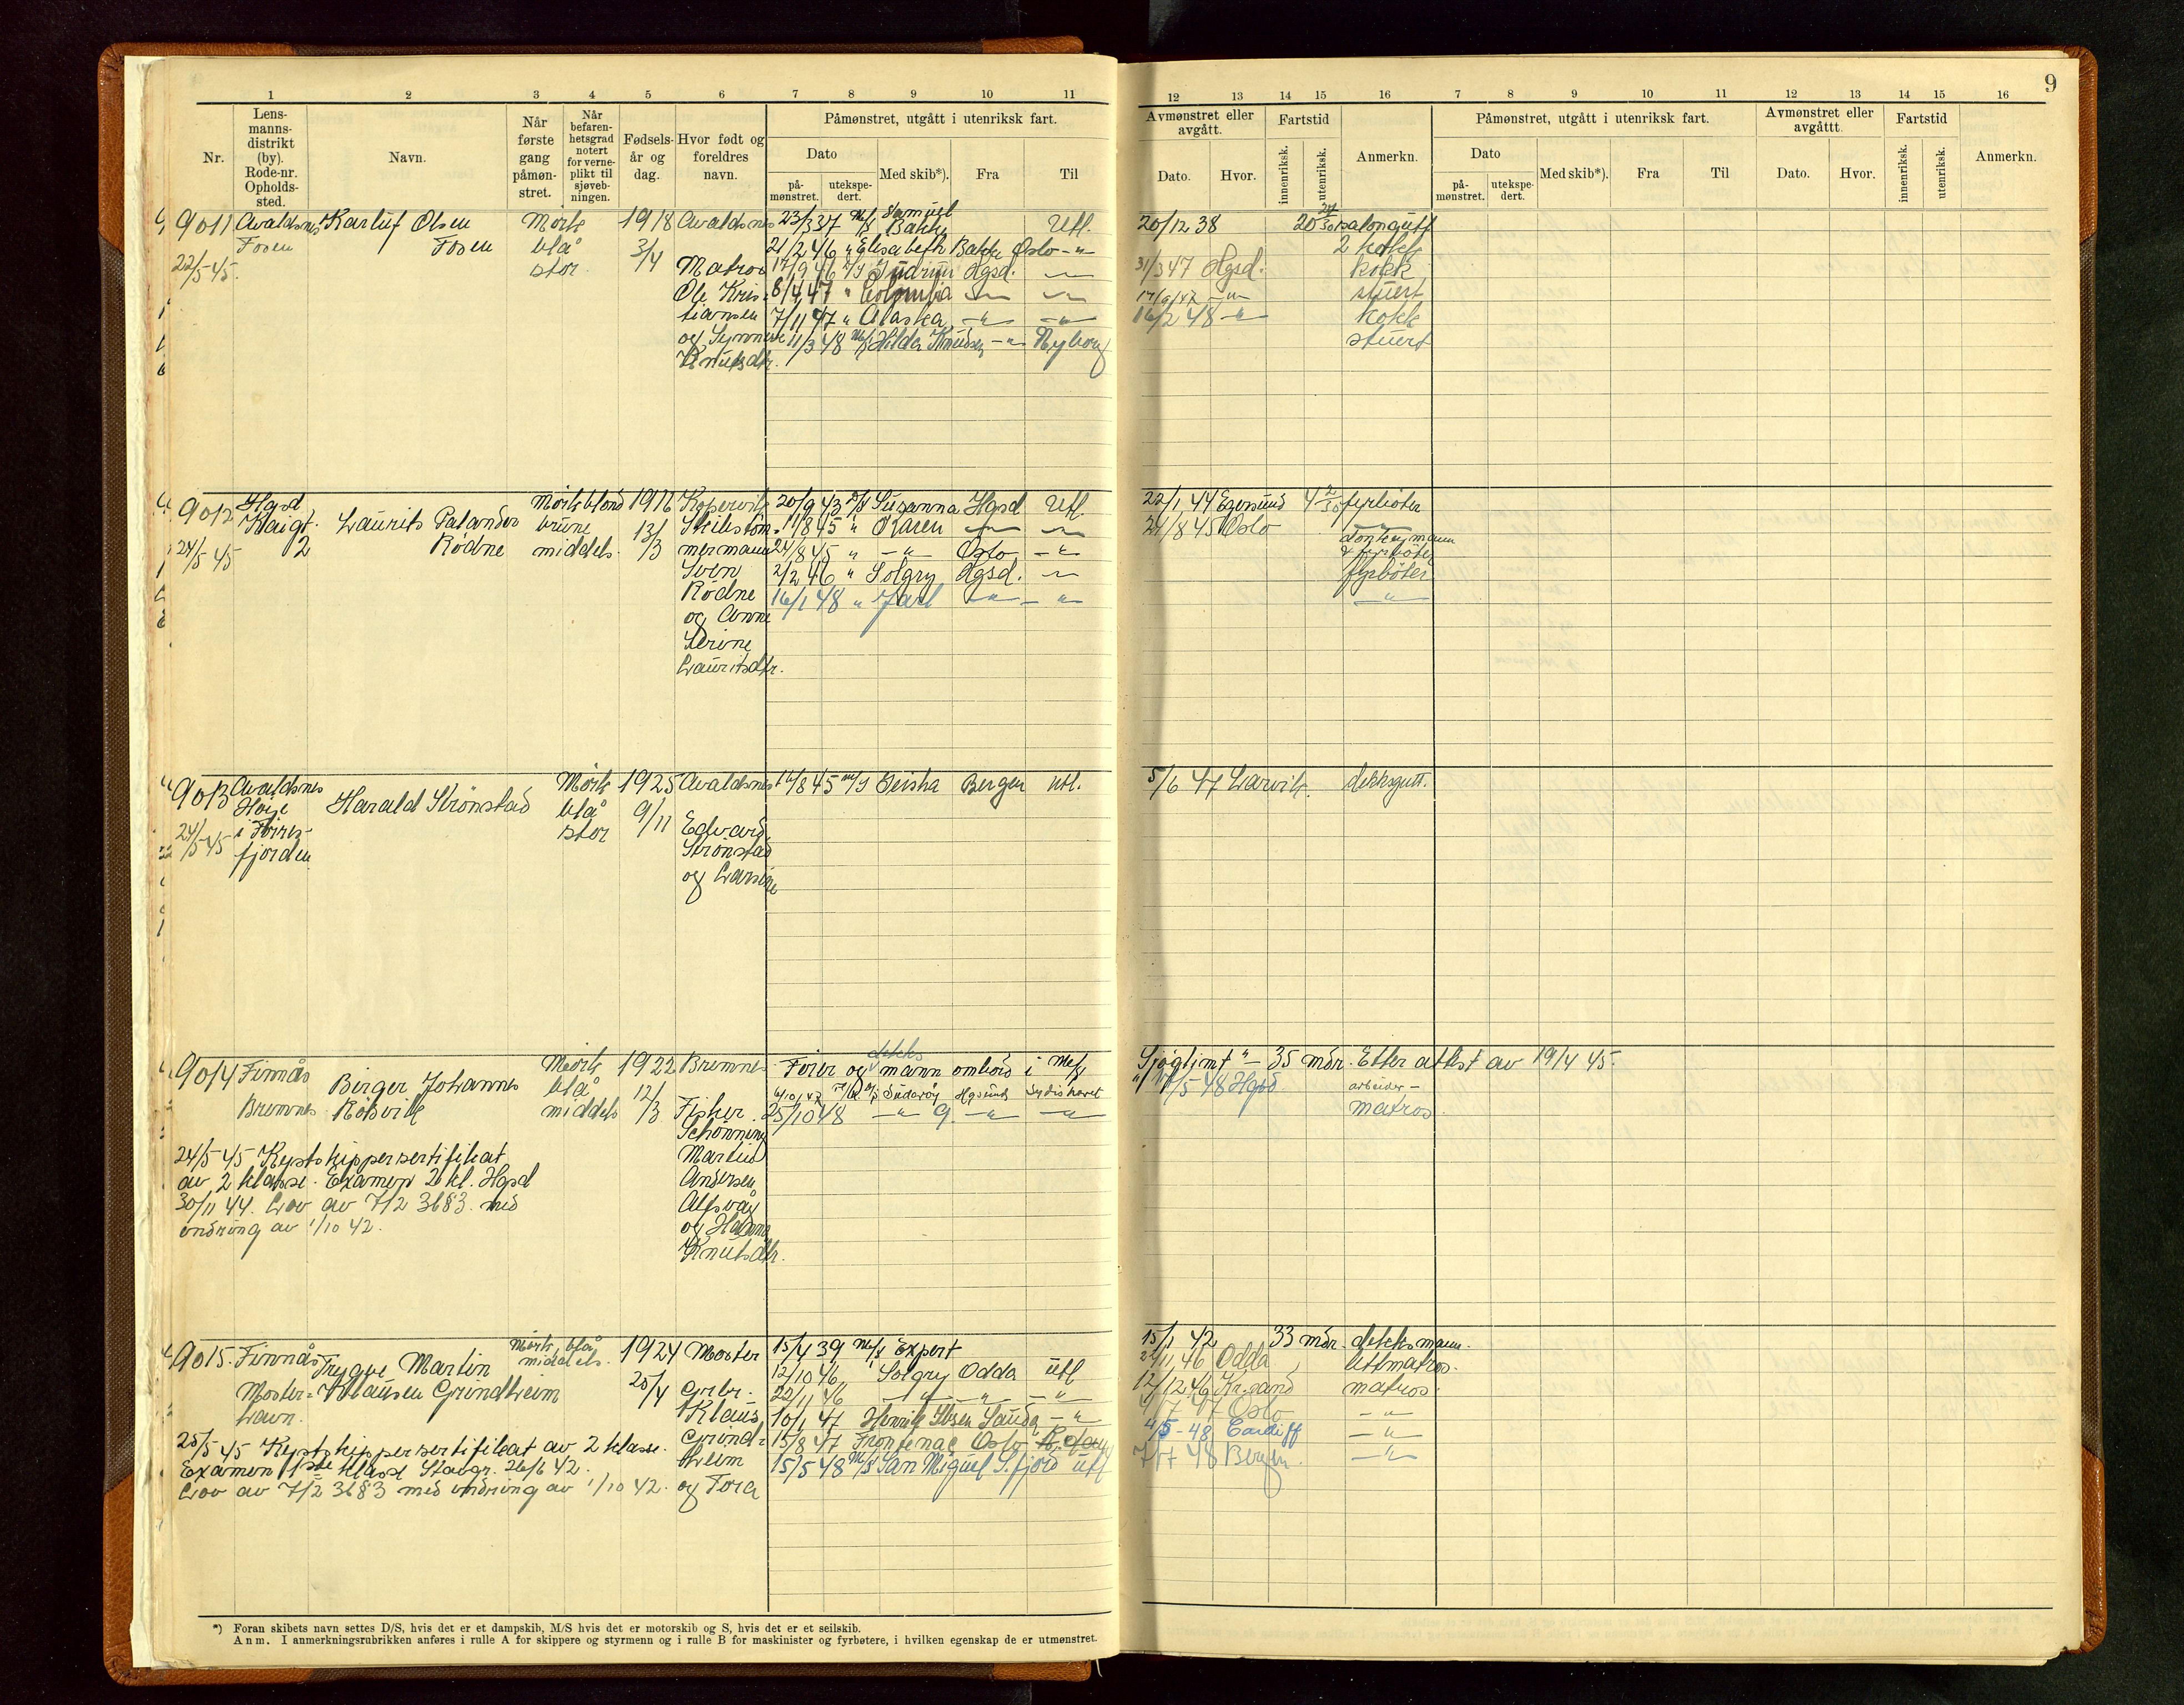 9
1 2 3 4 5 6 7 8 9 10 11
12 13 14 15 16 7 8 9 10 11 12 13 14 15 16
Nr.
Lens-
manns-
distrikt
(by).
Rode-nr.
Opholds-
sted.
Navn.
Når
første
gang
påmøn-
stret.
Når
befaren-
hetsgrad
notert
for verne-
plikt til
sjøveb-
ningen.
Fødsels-
år og
dag.
Hvor født og
foreldres
navn.
Påmønstret, utgått i utenriksk fart.
Dato
på-
mønstret.
utekspe-
dert.
Med skib*).
Fra
Til
Avmønstret eller
avgått.
Dato.
Hvor.
Fartstid
innenriksk.
utenriksk.
Anmerkn.
Påmønstret, utgått i utenriksk fart.
Dato
på-
mønstret.
utekspe-
dert.
Med skib*).
Fra
Til
Avmønstret eller
avgåttt.
Dato.
Hvor.
Fartstid
innenriksk.
utenriksk.
Anmerkn.
9011 Avaldsnes Karluf Olsen Mørk 1918 Avaldsnes 23/3 37 M/S Samuel Bakke Utl. 20/12 38 salongutt
Fosen Fosen blå 3/4 21/2 46 " Elisabeth Bakke Oslo -"- 2 kokk
22/5-45. stor Matros 17/9 46 Hgsd. 31/3 47 Hgsd. kokk
Ole Kris- 8/4 47 " Colombia 17/9 47 -"- stuert
tiansen 7/11 47 " Alaska -"- -"- 16/2 48 -"- kokk
og Synnøve 11/3 48 M/S Hilda Knudsen -"- Nyborg stuert
Knutsdtr.
9012 Hgsd Laurits Palander mørkblond 1916 Kopervik 20/9 43 D/S Susanna Hgsd Utl. 22/1 44 Egersund fyrbøter
brune 13/3 11/8 45 " Karen 21/8 45 Oslo
24/5 45 2 Rødne middels. mermann 24/8 45 " -"- Oslo -"- donkeymann
& fyrbøter
Sven 2/2 46 " Solgry Hgsd. fyrbøter
Rødne 16/1 48 " Jarl -"- -"- -"-
og Anne
Serine
Lauritsdtr.
9013 Avaldsnes Harald Strømstad Mørk 1925 Avaldsnes 14/8 45 M/S Geisha Bergen utl. 5/6 47 Larvik. dekksgutt.
blå 9/11
24/5-45 i Førres- stor Edvard
fjorden Strømstad
og
9014 Finnås Birger Johannes Mørk 1922 Bremnes Fører og dekksmann ombord i M/K Sjøglimt - 35 mdr. Etter attest av 19/4 45.
blå 12/3 Suderøy Hgsund Sydishavet /5 48 Hgsd arbeider-
Bremnes Røksvik middels Fisker 25/10 48 -"- 9. -"- -"- matros.
Schønning
24/5-45 Kystskippersertifikat Martin
av 2 klasse. Examen 2 kl. Hgsd Andersen
30/11 44. Lov av 7/2 36 §3. med Alfsvåg
endring av 1/10 42. og Hanna
Knutsdtr.
9015. Finnås Trygve Martin Mørk, blå middels. 1924 Moster 15/4 39 M/S Expert 15/1 42 33 mdr. dekksmann.
12/10 46 Solgry Odda utl 22/11 46 Odda lettmatros.
Moster- Klausen Grindheim 25/4 22/11 46 -"- -"- -"- 12/12 46 Kr.sand matros.
havn. Klaus 10/1 47 Henrik Ibsen Sauda -"- /7 47 Oslo -"-
25/5 45 Kystskippersertifikat av 2 klasse. Grind- 15/8 47 Frontenac Oslo 4/5 - 48 Cardiff -"-
Examen 1ste klasse Stavgr. 26/6 42. heim 15/5 48 M/S San Miguel S.fjord utl 7/7 48 Bergen. -"-
Lov av 7/2 36 §3 med endring av 1/10 42. og Tora
*) Foran skibets navn settes D/S, hvis det er et dampskib, M/S hvis det er motorskib og S, hvis det er et seilskib.
Anm. I anmerkningsrubrikken anføres i rulle A for skippere og styrmenn og i rulle B for maskinister og fyrbøtere, i hvilken egenskap de er utmønstret.